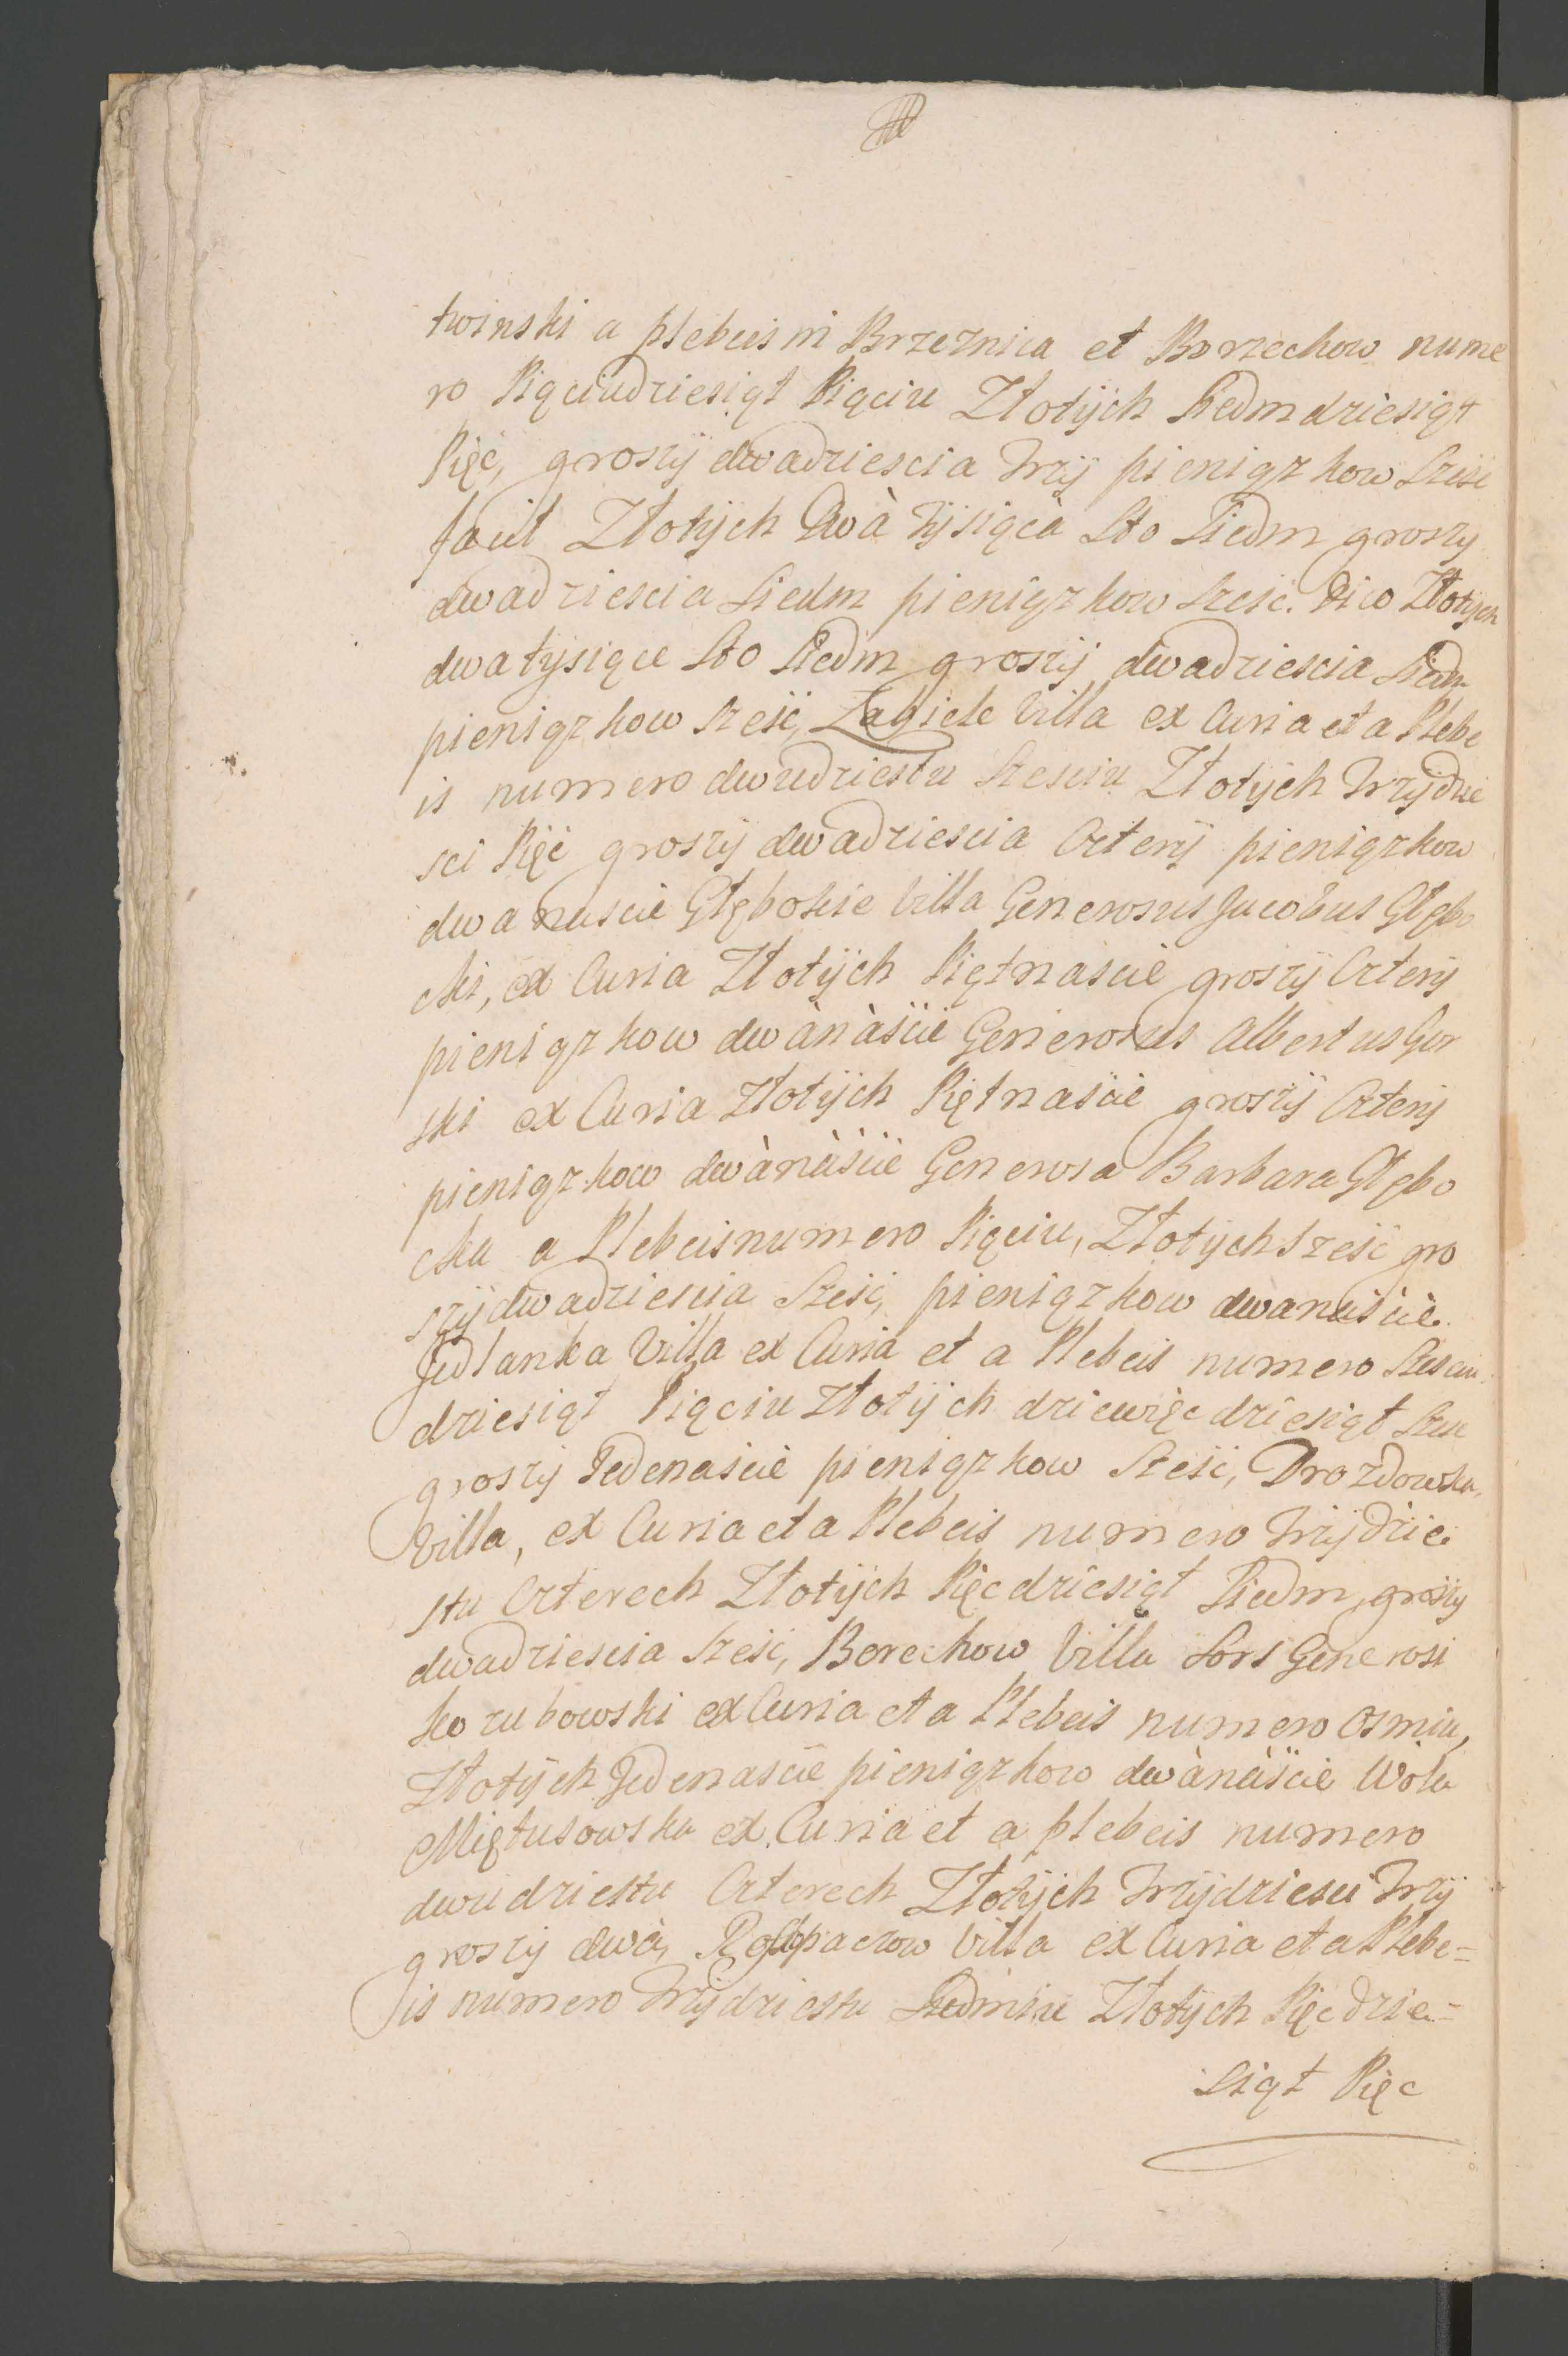 twinski a plebeis in Brzeznica et Borzechow nume
ro Pięciudziesiąt Pięciu Złotÿch Siedmdziesiąt
Pięć, groszÿ dwadziescia Trzÿ pieniązkow Szesc
facit Złotÿch Dwà Tÿsiącà Sto Siedm groszy
dwadziescia Siedm pieniązkow Szesc. Dico Złotych
dwa tÿsiące Sto Siedm groszÿ dwadziescia Siedm
pieniązkow Szesć, Zagiele Villa ex Curia et a Plebe
is numero dwudziestu Szesciu Złotÿch Trzÿdzie
sci Pięć groszÿ dwadziescia Czterÿ pieniązkow
dwanascie Głębokie Villa Generosus Jacobus Głębo
cki, ex Curia Złotÿch Piętnascie groszÿ Czterÿ
pieniązkow dwànàście Generosus Albertus Gor
ski ex Curia Złotÿch Piętnaście groszÿ Czterÿ
pieniązkow dwànàście Generosa Barbara Głębo
cka a Plebeis numero Pięciu, Złotÿch Szesć gro
szÿ dwadziescia Szesć, pieniązkow dwanaście.
Jedlanka Villa ex Curia et a Plebeis numero Szesciu
dziesiąt Pięciu Złotÿch dziewięcdziesiąt Szesc
groszÿ Jedenaście pieniązkow Szesć, Drozdowka,
Villa, ex Curia et a Plebeis numero Trzÿdzie
stu Czterech Złotÿch Pięcdziesiąt Siedm, groszy
dwadziescia Szesć, Borechow Villa Sors Generosi
Kozubowski ex Curia et a Plebeis numero Osmiu,
Złotÿch Jedenascie pieniązkow dwànàście Wola
Miętusowska ex Curia et a plebeis numero
dwudziestu Czterech Złotÿch Trzÿdziesci Trzÿ
groszÿ dwà, Villa ex Curia et a Plebe=
is numero Trzÿdziestu Siedmiu Złotÿch Pięcdzie=
siąt Pięc